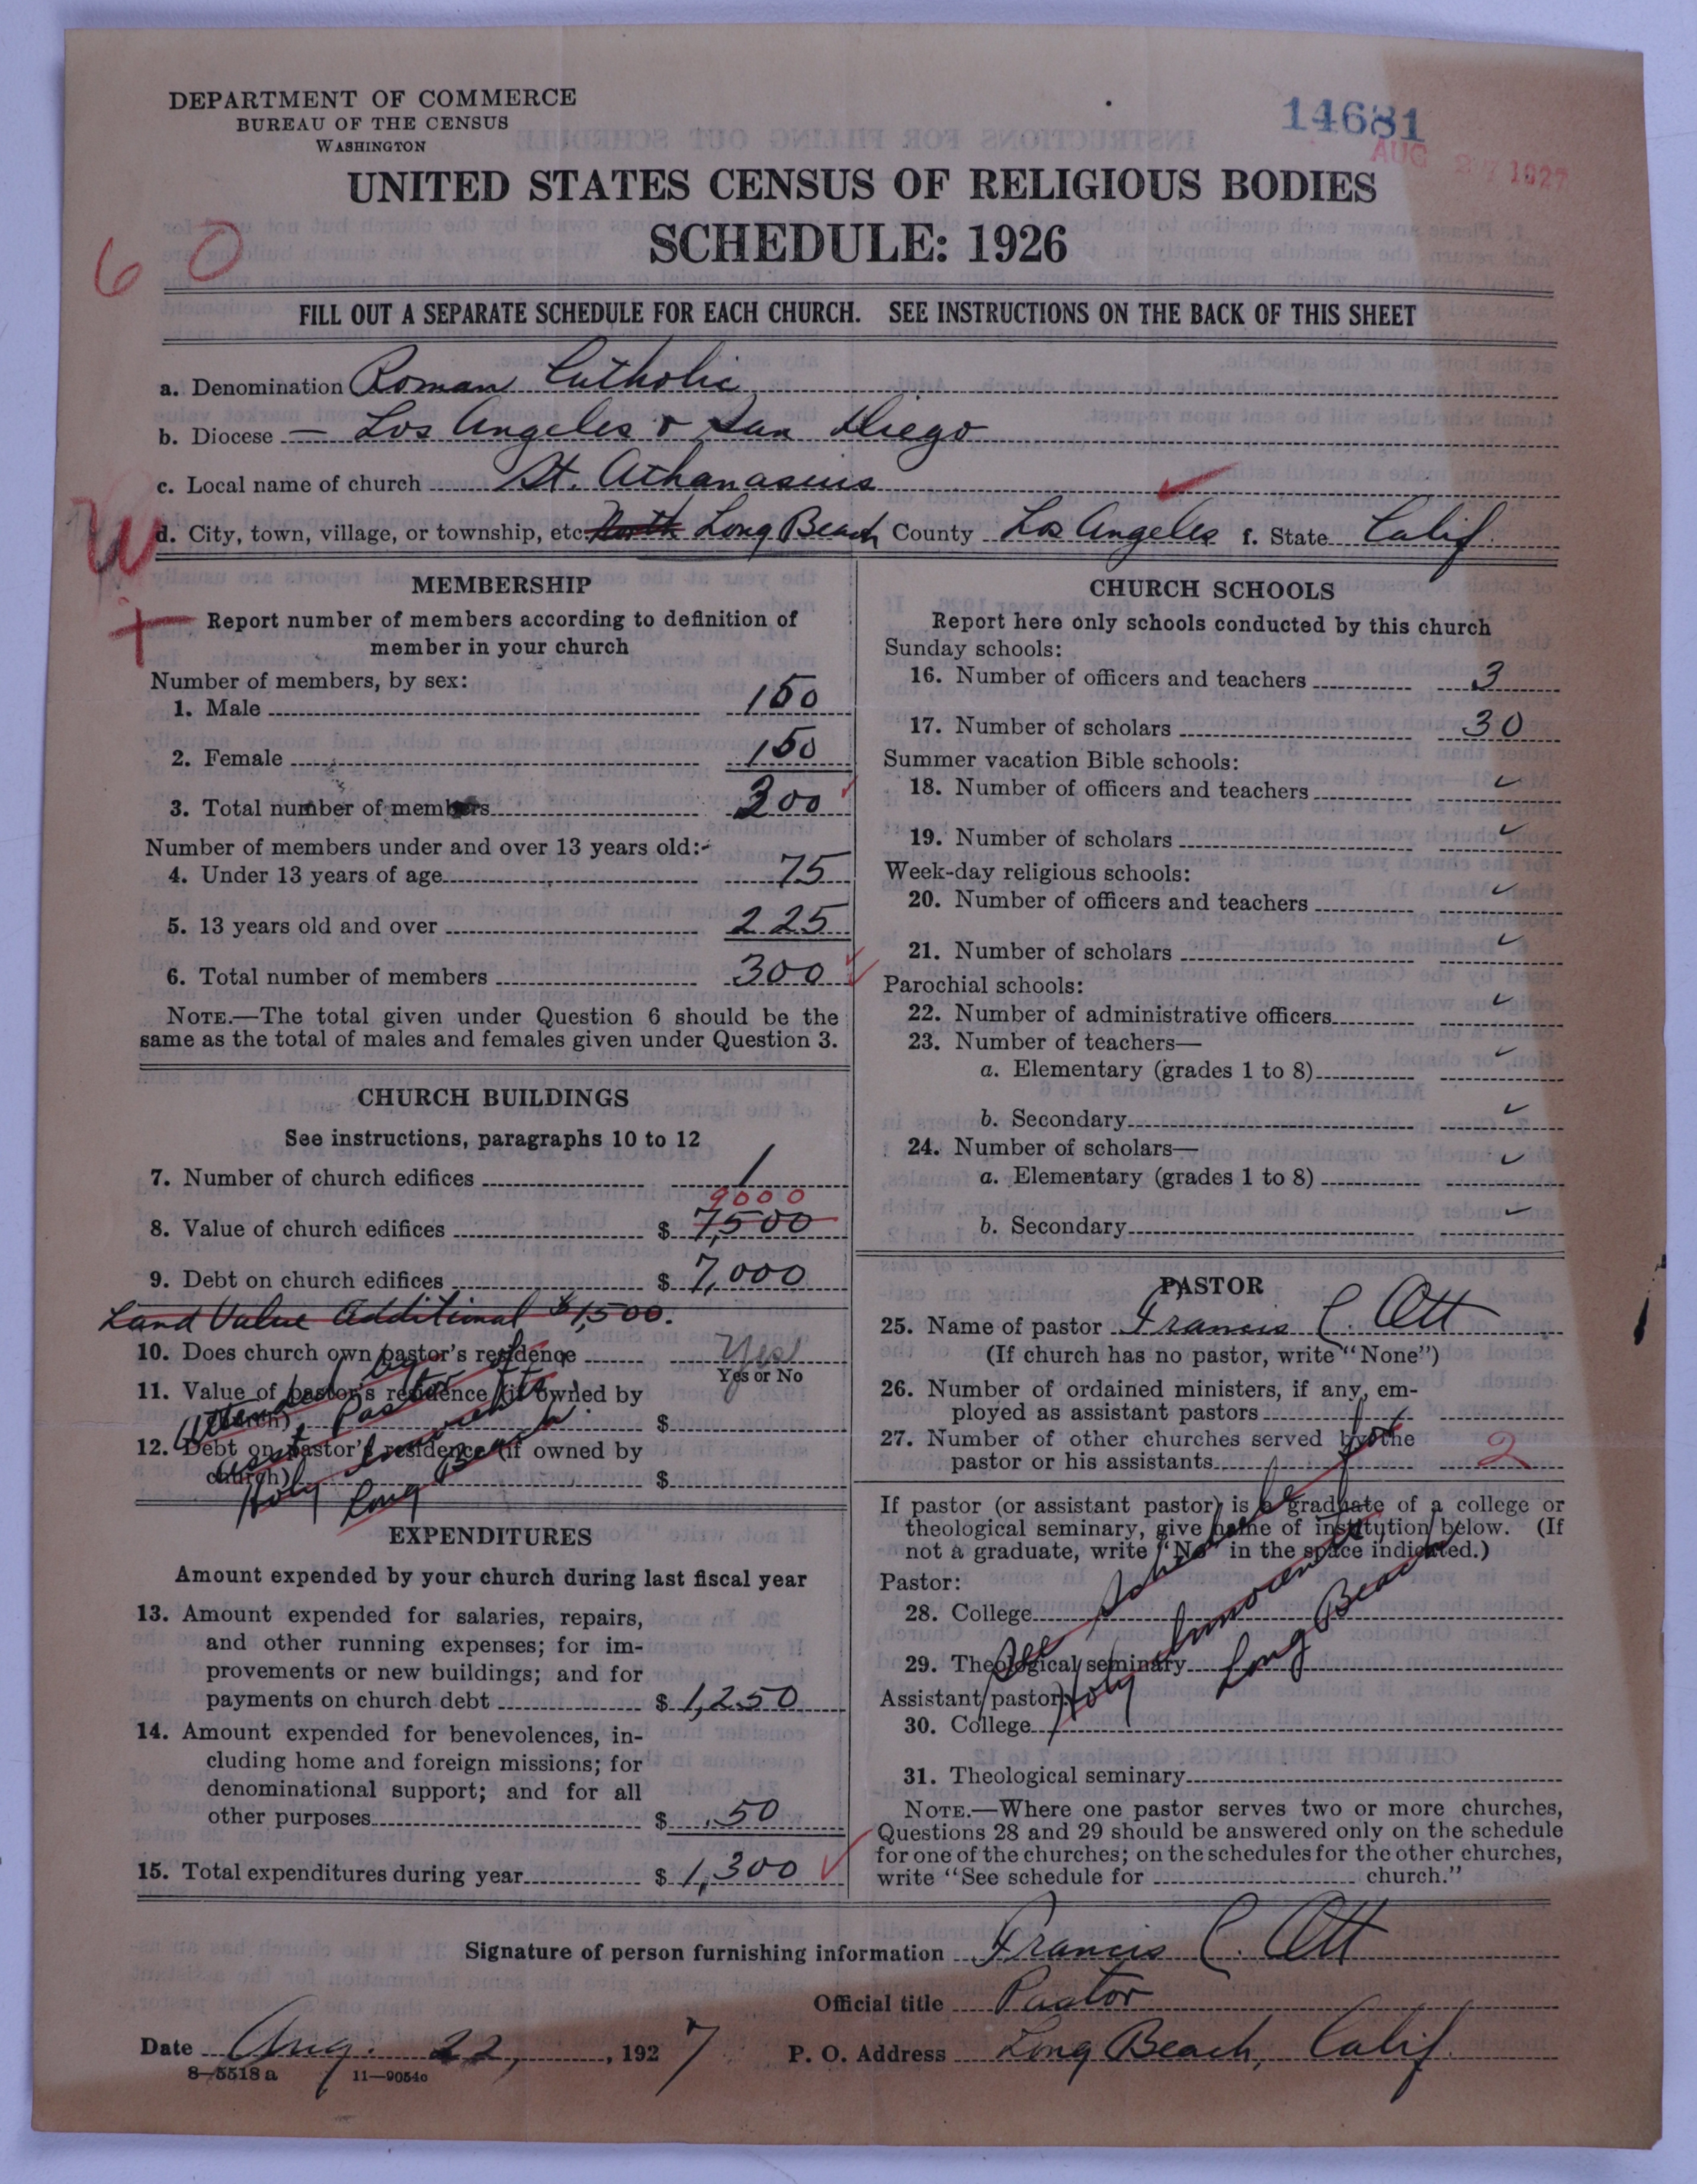 DEPARTMENT OF COMMERCE
BUREAU OF THE CENSUS
WASHINGTON
14681
AUG 27 1927
UNITED STATES CENSUS OF RELIGIOUS BODIES
SCHEDULE: 1926
60
FILL OUT A SEPARATE SCHEDULE FOR EACH CHURCH. SEE INSTRUCTIONS ON THE BACK OF THIS SHEET
a. Denomination Roman Catholic
b. Diocese — Los Angeles & San Diego
c. Local name of church St. Athanasius
d. City, town, village, or township, etc. North Long Beach County Los Angeles f. State Calif.
MEMBERSHIP
Report number of members according to definition of
member in your church
Number of members, by sex:
1. Male 150
2. Female 150
3. Total number of members 300
Number of members under and over 13 years old:-
4. Under 13 years of age 75
5. 13 years old and over 225
6. Total number of members 300
NOTE.—The total given under Question 6 should be the
same as the total of males and females given under Question 3.
CHURCH BUILDINGS
See instructions, paragraphs 10 to 12
7. Number of church edifices 1
9000
8. Value of church edifices $ 7,500
9. Debt on church edifices $ 7,000
Land Value Additional $1,500.
10. Does church own pastor's residence Yes
Yes or No
11. Value of pastor's residence (if owned by
church) $
12. Debt on pastor's residence (if owned by
church) $
Attended by Pastor of
Holy Innocents
Long Beach
EXPENDITURES
Amount expended by your church during last fiscal year
13. Amount expended for salaries, repairs,
and other running expenses; for im-
provements or new buildings; and for
payments on church debt $ 1,250
14. Amount expended for benevolences, in-
cluding home and foreign missions; for
denominational support; and for all
other purposes $ 50
15. Total expenditures during year $ 1,300
CHURCH SCHOOLS
Report here only schools conducted by this church
Sunday schools:
16. Number of officers and teachers 3
17. Number of scholars 30
Summer vacation Bible schools:
18. Number of officers and teachers
19. Number of scholars
Week-day religious schools:
20. Number of officers and teachers
21. Number of scholars
Parochial schools:
22. Number of administrative officers
23. Number of teachers—
a. Elementary (grades 1 to 8)
b. Secondary
24. Number of scholars—
a. Elementary (grades 1 to 8)
b. Secondary
PASTOR
25. Name of pastor Francis C. Ott
(If church has no pastor, write "None")
26. Number of ordained ministers, if any, em-
ployed as assistant pastors
27. Number of other churches served by the
pastor or his assistants 2
If pastor (or assistant pastor) is a graduate of a college or
theological seminary, give name of institution below. (If
not a graduate, write "No" in the space indicated.)
Pastor:
28. College
29. Theological seminary
Assistant pastor:
30. College
31. Theological seminary
See Schedule for
Holy Innocents
Long Beach
NOTE.—Where one pastor serves two or more churches,
Questions 28 and 29 should be answered only on the schedule
for one of the churches; on the schedules for the other churches,
write "See schedule for church."
Signature of person furnishing information Francis C. Ott
Official title Pastor
Date Aug. 22, 1927 P. O. Address Long Beach, Calif.
8-5518a 11-9054c